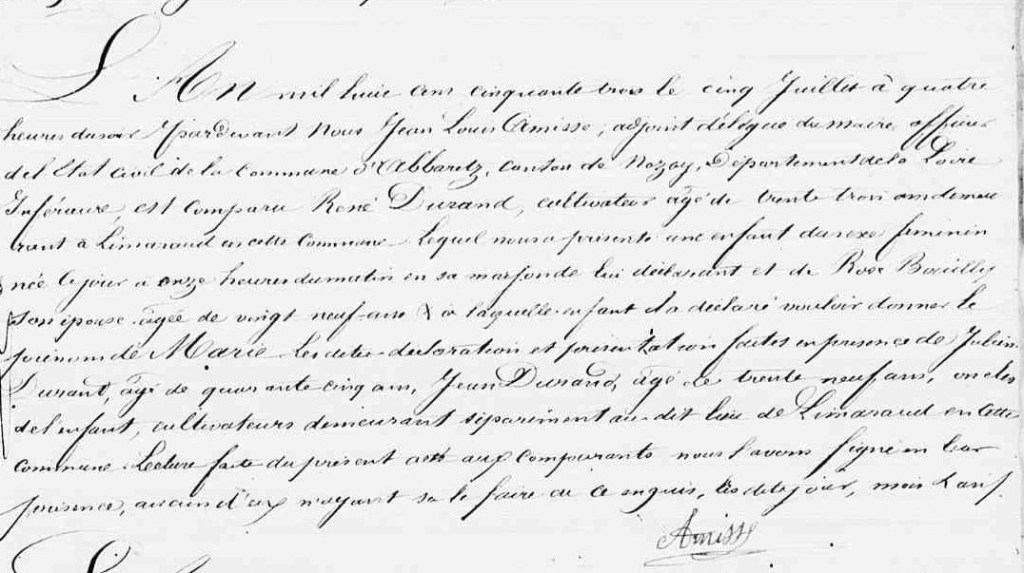 L'An mil huit cent cinquante trois le cinq Juillet à quatre
heures du soir Pardevant Nous Jean Louis Amisse, adjoint délégué du maire officier
de l'Etat civil de la Commune d'Abbaretz, canton de Nozay, Département de la Loire
Inférieure, est comparu René Durand, cultivateur âgé de trente trois ans demeu
rant à Limaraud en cette Commune Lequel nous a présenté une enfant du sexe féminin
née ce jour à onze heures du matin en sa maison de lui déclarant et de Rose
son épouse âgée de vingt neuf ans & à laquelle enfant il a déclaré vouloir donner le
prénom de Marie Les dites déclaration et présentation faites en présence de Julien
Durant, âgé de quarante cinq ans, Jean Durand, âgé de trente neuf ans, oncles
de l'enfant, cultivateurs demeurant séparément au dit lieu de Limaraud en cette
commune Lecture faite du présent acte aux comparants nous l'avons signé en leur
présence, aucun d'eux n'ayant su le faire de ce enquis, les dits jour, mois & an
Amisse